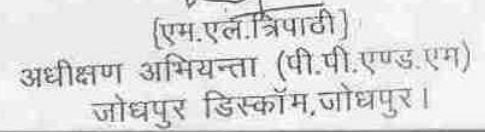 [एम.एल.त्रिपाठी]
अधीक्षण अभियन्ता (पी.पी.एण्ड.एम)
जोधपुर डिस्कॉम,जोधपुर।